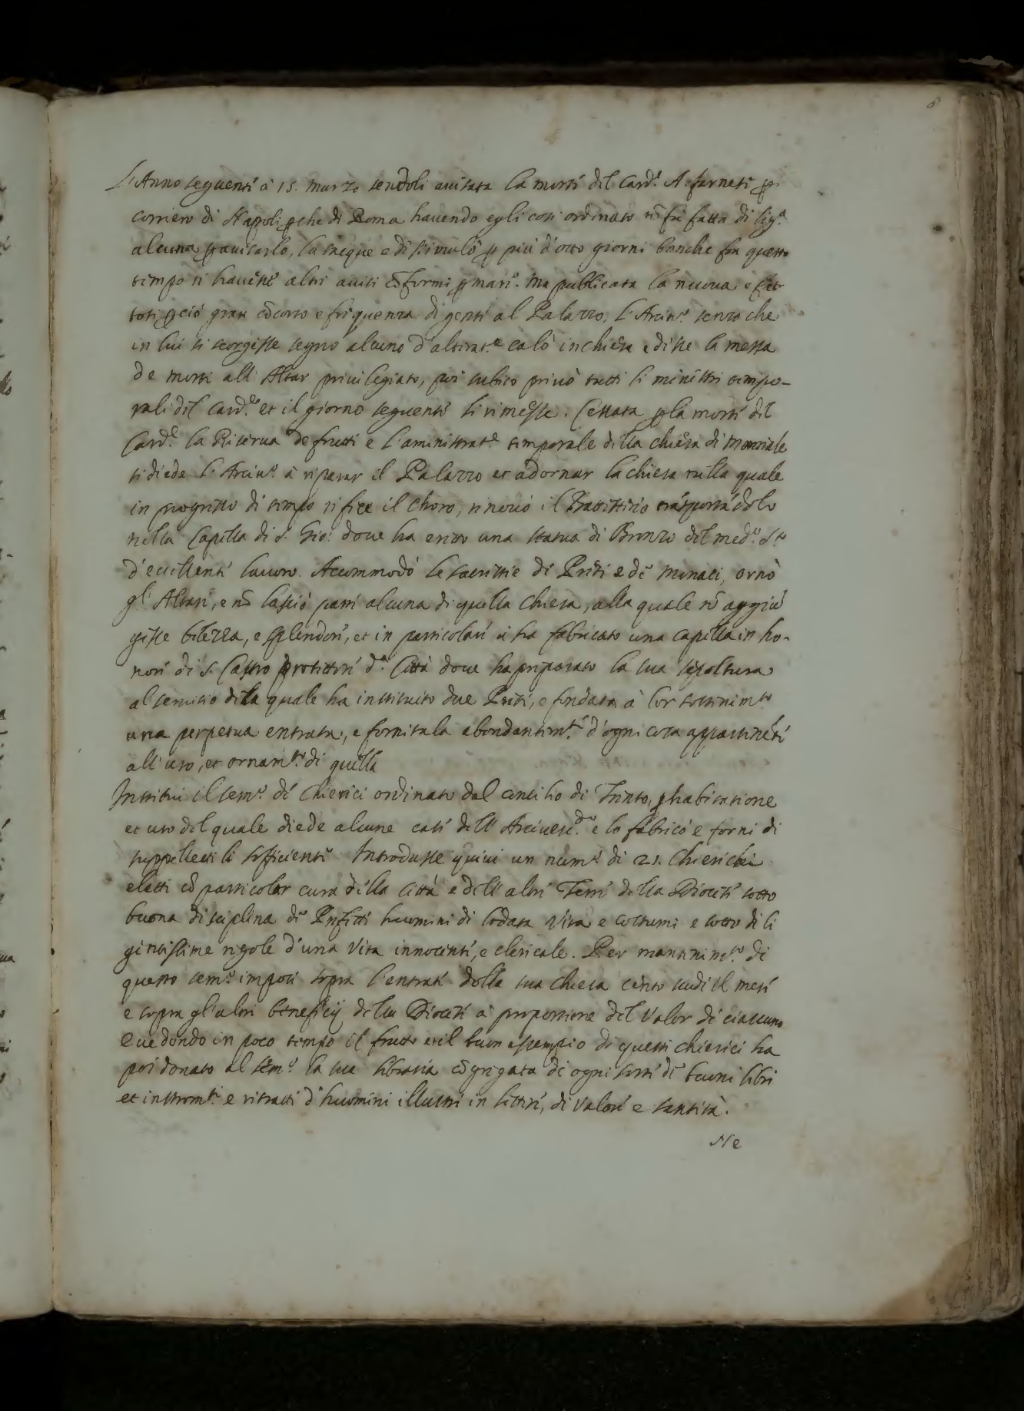 8
L'Anno seguente à 15. marzo sendoli avisata la morte del Card.l A. farnese p
corriero di Napoli, pche di Roma havendo egli così ordinato nõ fù fatta di lig.ª
alcuna p avisarlo, la tacque e dissimulò p più d'otto giorni benche fra questo
tempo si havesse altri avisi cõformi p mare. Ma publicata la nuova, e
p ciò gran cõcorso e frequenza di gente al Palazzo, l'Arciv.º senza che
in lui si scorgesse segno alcuno d'alterat.e calò in chiesa e disse la messa
de morti all'Altar privilegiato, poi subito privò tutti li ministri tempo-
rali del Card.l et il giorno seguente li rimesse. Cessata p la morte del
Card.l la Riserva de frutti e l'aministrat.e temporale della chiesa di Monreale
si diede l'Arciv.º à riparar il Palazzo et adornar la chiesa nella quale
in progresso di tempo rifece il choro, rinovò il Battisterio trasportãdolo
nella Capella di S. Gio: dove ha eretto una statua di Bronzo del med.º S.to
d'eccellente lavoro. Accommodò le sacristie de Preti e de Monaci, ornò
gl'Altari, e nõ lasciò parte alcuna di quella chiesa, alla quale nõ aggiũ
gesse bellezza, e splendore, et in particolare vi ha fabricato una capella in ho-
nore di S. Castro protettore d.ª Città dove ha preparato la sua sepoltura
al servitio della quale ha instituito due Preti, e fondata à lor sostenim.to
una perpetua entrata, e fornitala abondantem.te d'ogni cosa appartinẽte
all'uso, et ornam.to di quella
Instituì il sem.º de Chierici ordinato dal concilio di Trento, p habitatione
et uso del quale diede alcune case dell'Arcivesc.do e lo fabricò e fornì di
suppellettili sofficienti. Introdusse quivi un num.º di 25. Chierichi
eletti cõ particolar cura della Città e dell'altre Terre della Diocesi sotto
buona disciplina de Prefetti huomini di lodata vita e costumi e sotto dili
gentissime regole d'una vita innocente, e clericale. Per mantenim.to di
questo sem.º impose sopra l'entrate della sua chiesa cento scudi il mese
e sopra gl'altri beneficij della Diocesi à proportione del valor di ciascuno
e vedendo in poco tempo il frutto et il buon essempio di questi chierici ha
poi donato al sem.º la sua libraria cõgregata di ogni sorte di buoni libri
et instrom.ti e ritratti d'huomini illustri in lettere, di valore e santità.
Ne